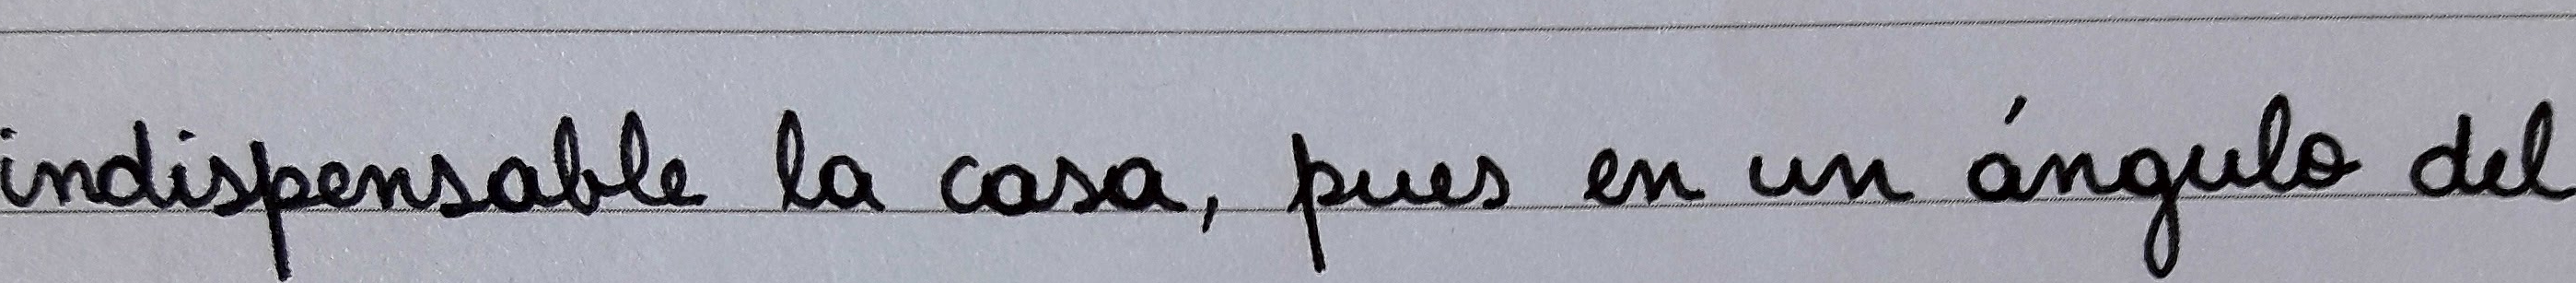 indispensable la casa, pues en un ángulo del